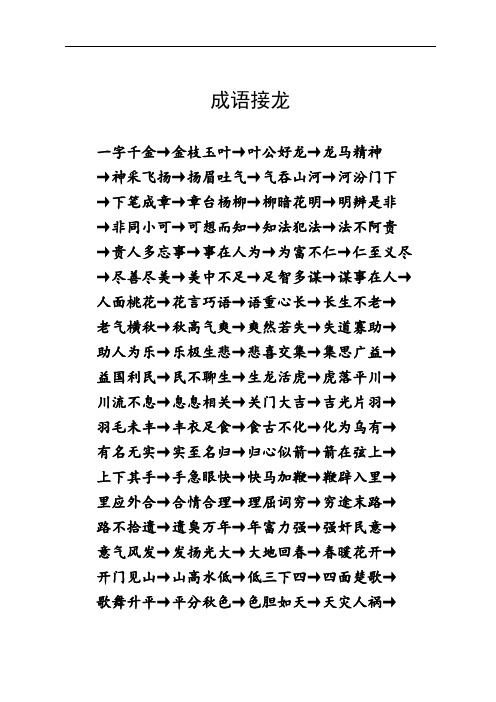 成语接龙
一字千金→金枝玉叶→叶公好龙→龙马精神
→神采飞扬→扬眉吐气→气吞山河→河汾门下
→下笔成章→章台杨柳→柳暗花明→明辨是非
→非同小可→可想而知→知法犯法→法不阿贵
→贵人多忘事→事在人为→为富不仁→仁至义尽
→尽善尽美→美中不足→足智多谋→谋事在人→
人面桃花→花言巧语→语重心长→长生不老→
老气横秋→秋高气爽→爽然若失→失道寡助→
助人为乐→乐极生悲→悲喜交集→集思广益→
益国利民→民不聊生→生龙活虎→虎落平川→
川流不息→息息相关→关门大吉→吉光片羽→
羽毛未丰→丰衣足食→食古不化→化为乌有→
有名无实→实至名归→归心似箭→箭在弦上→
上下其手→手急眼快→快马加鞭→鞭辟入里→
里应外合→合情合理→理屈词穷→穷途末路→
路不拾遗→遗臭万年→年富力强→强奸民意→
意气风发→发扬光大→大地回春→春暖花开→
开门见山→山高水低→低三下四→四面楚歌→
歌舞升平→平分秋色→色胆如天→天灾人祸→